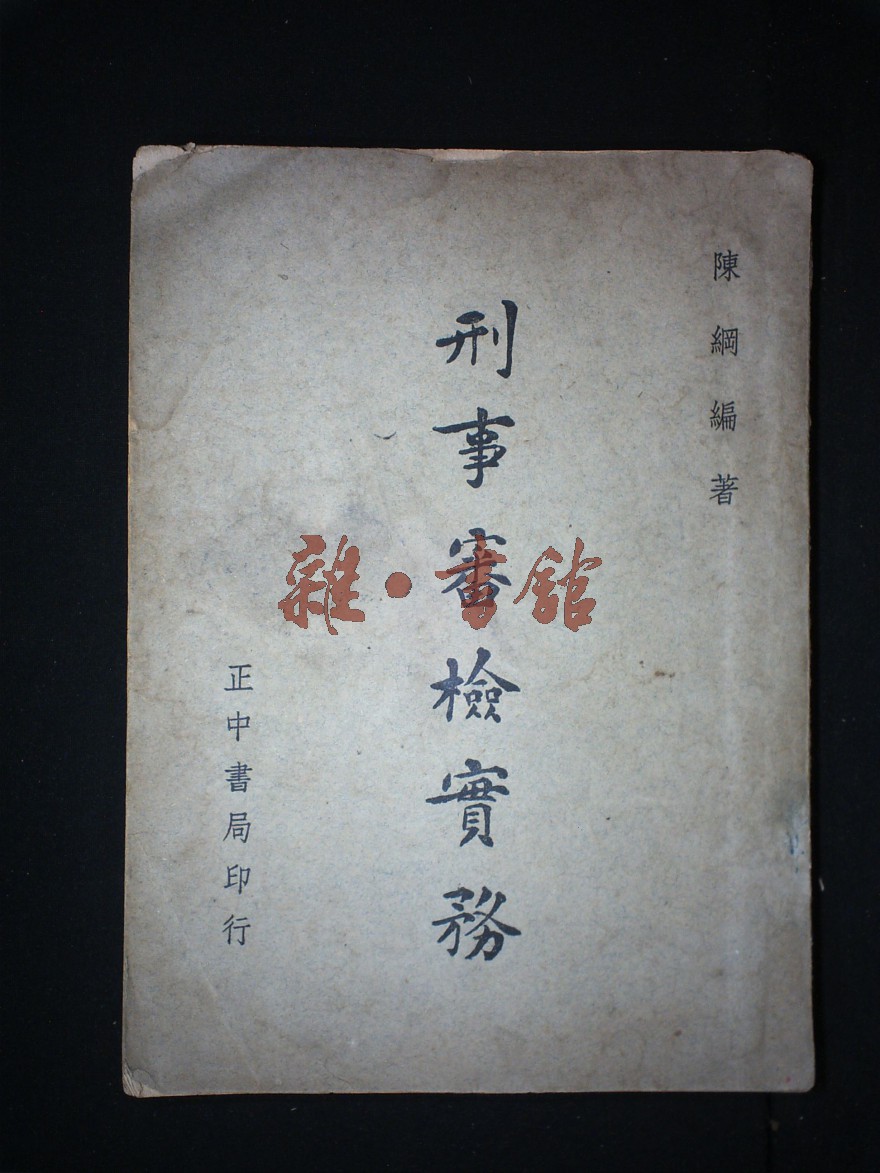 陳綱編著
刑事審檢實務
正中書局印行
雜·書舘